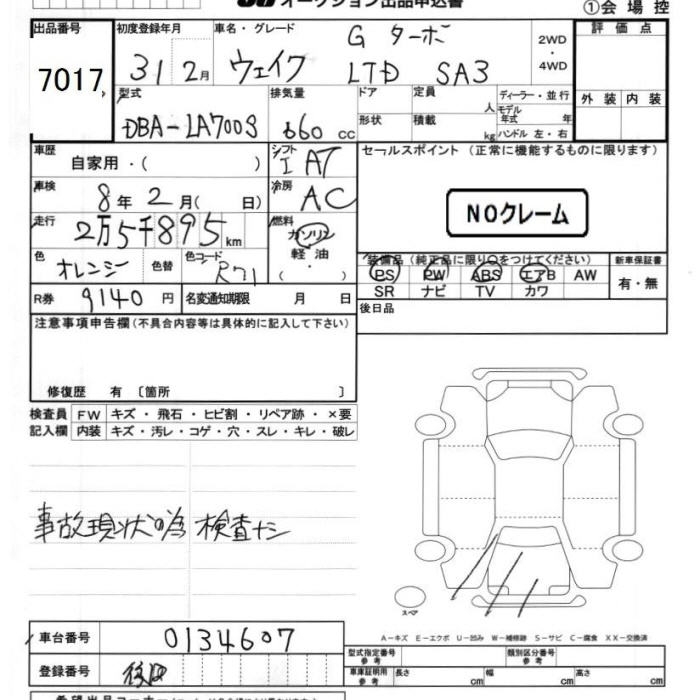 オークション出品申込書
①会場控
出品番号 初度登録年月 車名・グレード 評価点
7017 31 2月 ウェイク G ターボ LTD SA3 2WD・4WD
外装 内装
型式 排気量 ドア 定員 人 ディーラー・並行
DBA-LA700S 660 cc 形状 積載 kg モデル年式 年 ハンドル 左・右
車歴 自家用・( ) シフト I AT セールスポイント (正常に機能するものに限ります)
車検 8年2月( 日) 冷房 AC
NOクレーム
走行 2万5千895km 燃料 ガソリン 軽油 ・( )
色 オレンジー 色替 色コード R71
装備品 (純正品に限り○をつけてください) 新車保証書
PS PW ABS エアB AW 有・無
SR ナビ TV カワ
R券 9140 円 名変通知期限 月 日 後日品
注意事項申告欄 (不具合内容等は具体的に記入して下さい)
修復歴 有 〔箇所 〕
検査員 FW キズ・飛石・ヒビ割・リペア跡・×要
記入欄 内装 キズ・汚レ・コゲ・穴・スレ・キレ・破レ
事故現状の為 検査ナシ
スペア
A-キズ E-エクボ U-凹み W-補修跡 S-サビ C-腐食 XX-交換済
車台番号 0134607
型式指定番号 参考 類別区分番号 参考
登録番号 後日
車庫証明用 参考 長さ cm 幅 cm 高さ cm
希望出品コーナー